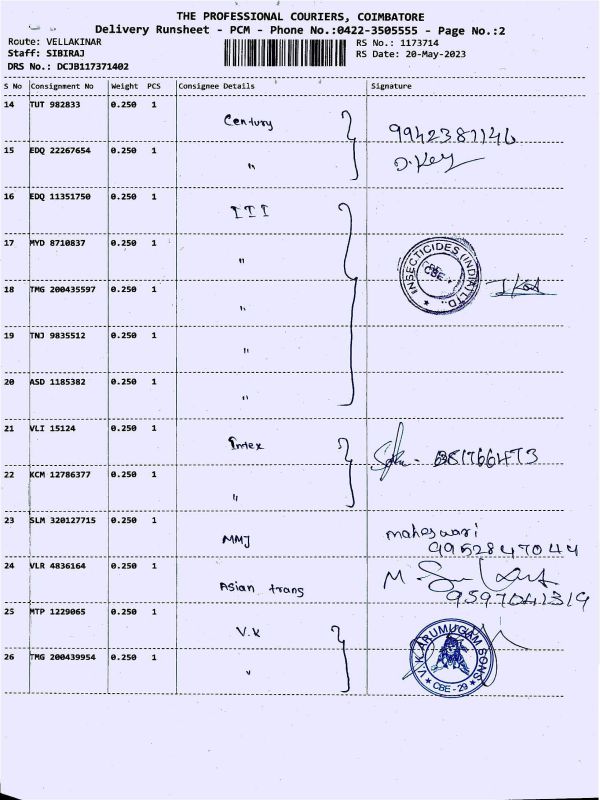 THE PROFESSIONAL COURIERS, COIMBATORE
Delivery Runsheet - PCM - Phone No.:0422-3505555 - Page No.:2
Route: VELLAKINAR
RS No.: 1173714
Staff: SIBIRAJ
RS Date: 20-May-2023
DRS No.: DCJB117371402
S No Consignment No Weight PCS Consignee Details Signature
14 TUT 982833 0.250 1 Century 9942381146
15 EDQ 22267654 0.250 1 "
16 EDQ 11351750 0.250 1 III
17 MYD 8710837 0.250 1 " INSECTICIDES (INDIA) LTD. CBE
18 TMG 200435597 0.250 1 "
19 TNJ 9835512 0.250 1 "
20 ASD 1185382 0.250 1 "
21 VLI 15124 0.250 1 Intex
22 KCM 12786377 0.250 1 "
23 SLM 320127715 0.250 1 MMJ maheswari
9952847044
24 VLR 4836164 0.250 1 Asian trans
9597041319
25 MTP 1229065 0.250 1 V.K V.K.ARUMUGAM SONS CBE - 29
26 TMG 200439954 0.250 1 "